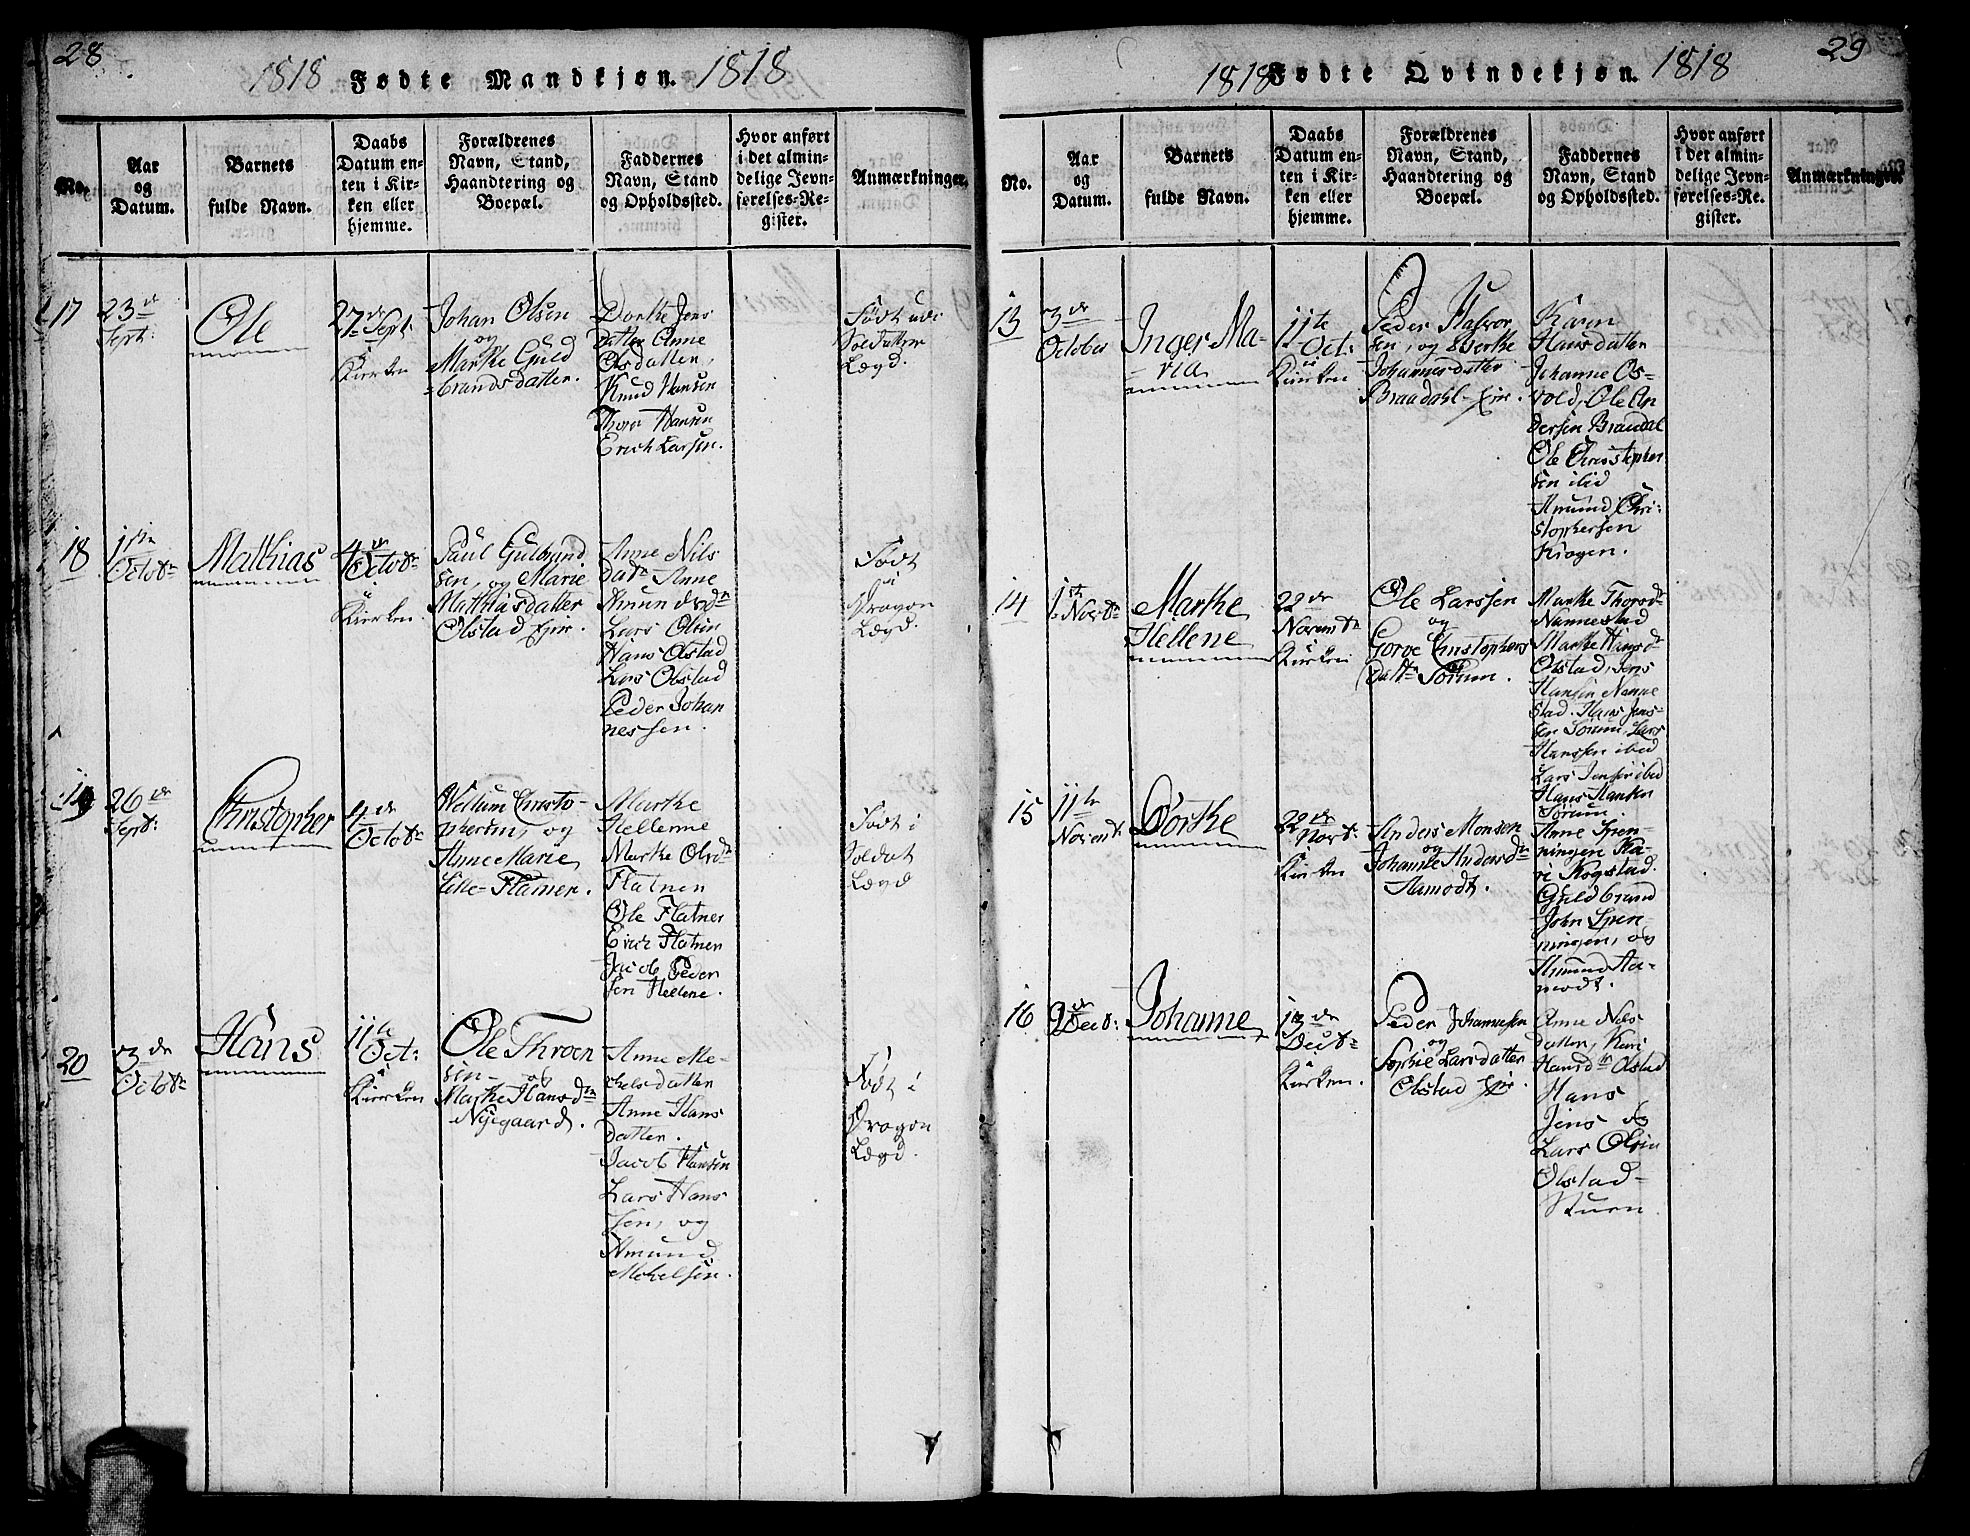 28
1818 Fødte Mandkjøn. 1818
No.
Aar
og
Datum.
Barnets
fulde Navn.
Daabs
Datum en-
ten i Kir-
ken eller
hjemme.
Forældrenes
Navn, Stand,
Haandtering og
Boepæl.
Faddernes
Navn, Stand
og Opholdssted.
Hvor anført
i det almin-
delige Jevn-
førelses-Re-
gister.
Anmærkninger.
17
23de
Sept:
Ole
27de Sept:
i
Kierken
Johan Olsen
og
Marthe Guld
=brandsdatter.
Dorthe Jens
datter Anne
Olsdatter,
Knud Hansen
Thor Hansen
Erich Larsen.
Født udi
Soldater
Lægd.
18
1ste
Octobr
Mathias
4de
Octobr
i
Kierken.
Paul Gulbrand
sen, og Marie
Mathiasdatter
Olstad Ejer.
Anne Nils
Datr Anne
Amundsdr
Lars Olsen
Hans Olstad
Lars Olstad
Peder Johan
nessen.
Født
i
Dragon
Lægd.
19
26de
Sept:
Christopher
4de
Octobr
Christo-
phersen, og
Anne Marie
Lille-Flatner.
Marthe
Hellerne
Marthe Olsdr
Flatner
Ole Flatner
Erich Flatner
Jacob Peder
sen Hellene.
Født i
Soldat
Lægd
20
3de
Octobr
Hans
11te
Oct:
i
Kierken
Ole Thron
sen- og
Marthe Hansdr
Nyegaard.
Anne Me-
chelsdatter
Anne Hans
datter.
Jacob Hansen
Lars Hans
sen, og
Amund
Mekelsen.
Født i
Dragon
Lægd.
29
1818 Fødte Qvindekjøn. 1818
No.
Aar
og
Datum.
Barnets
fulde Navn.
Daabs
Datum en-
ten i Kir-
ken eller
hjemme.
Forældrenes
Navn, Stand,
Haandtering og
Boepæl.
Faddernes
Navn, Stand
og Opholdssted.
Hvor anført
i der almin-
delige Jevn-
førelses-Re-
gister.
Anmærkninger.
13
3de
October
Inger Ma-
ria
11te
Oct:
i
Kierken
Peder Halvor
sen, og Berthe
Johannesdatter
Braadahl-Ejer.
Karen
Hansdatter
Johanne Os-
vold, Ole An
dersen Braadal
Ole Christopher
sen ibid
Amund Chri-
stophersen
Krogen.
14
1ste
Novbr
Marthe
Hellene
22de
Novembr
Kierken
Ole Larssen
og
Gorve Christophers
Datr Sørum.
Marthe Thorsdr
Nannestad
Marthe Hansdr
Olstad, Jens
Hansen Nanne
stad. Hans Jens-
sen Sørum, Lars
Hanssen ibid
Lars Jensen ibid
Hans Hansen
Sørum.
15
11te
Novembr
Dorthe
22de
Novbr.
i
Kierken
Anders Monsen
og
Johanne Andersdr
Aamodt.
Anne Spen-
ningen Ka-
ri Rogstad.
Guldbrand
John Spen-
ningen, og
Amund Aa-
modt.
16
2de
Decb:
Johanne
13de
Decbr
Kierken.
Peder Johannesen
og
Sophie Larsdatter
Olstad Ejer.
Anne Nels
datter, Kari
Hansdr Olstad
Hans
Jens og
Lars Olsen
Olstad-